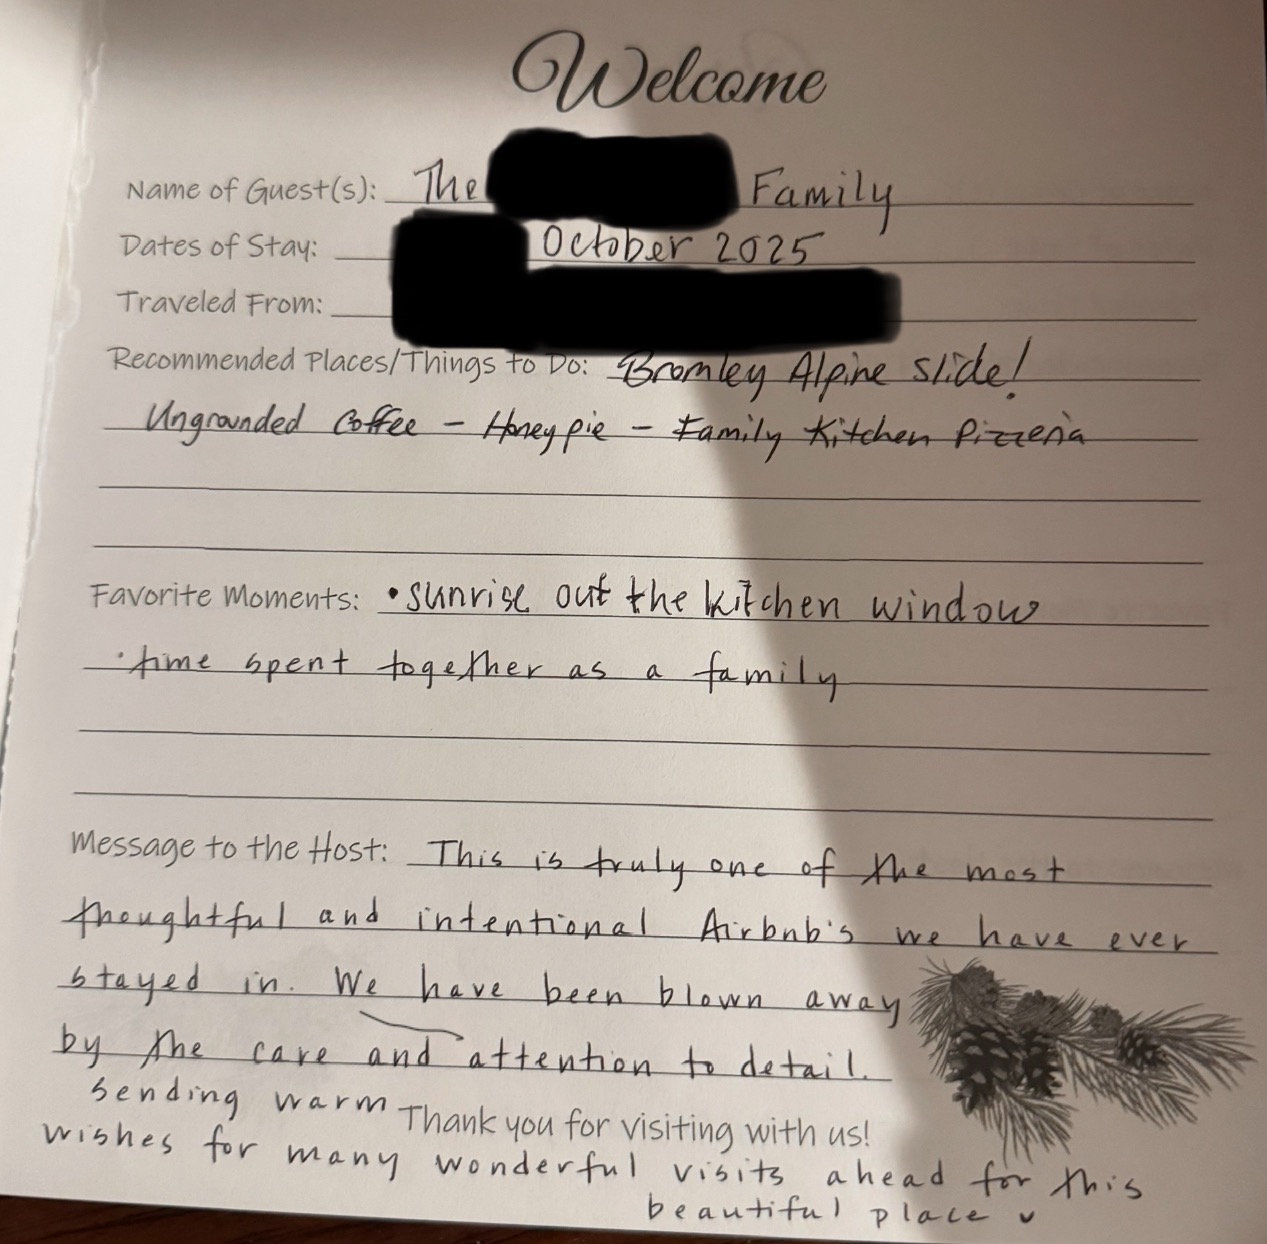 Welcome
Name of Guest(s): The Family
Dates of Stay: October 2025
Traveled From:
Recommended Places/Things to Do: Bromley Alpine Slide!
Ungrounded Coffee - Honeypie - Family Kitchen Pizzeria
Favorite Moments: • sunrise out the kitchen window
• time spent together as a family
Message to the Host: This is truly one of the most
thoughtful and intentional Airbnb's we have ever
stayed in. We have been blown away
by the care and attention to detail.
sending warm
Thank you for visiting with us!
wishes for many wonderful visits ahead for this
beautiful place